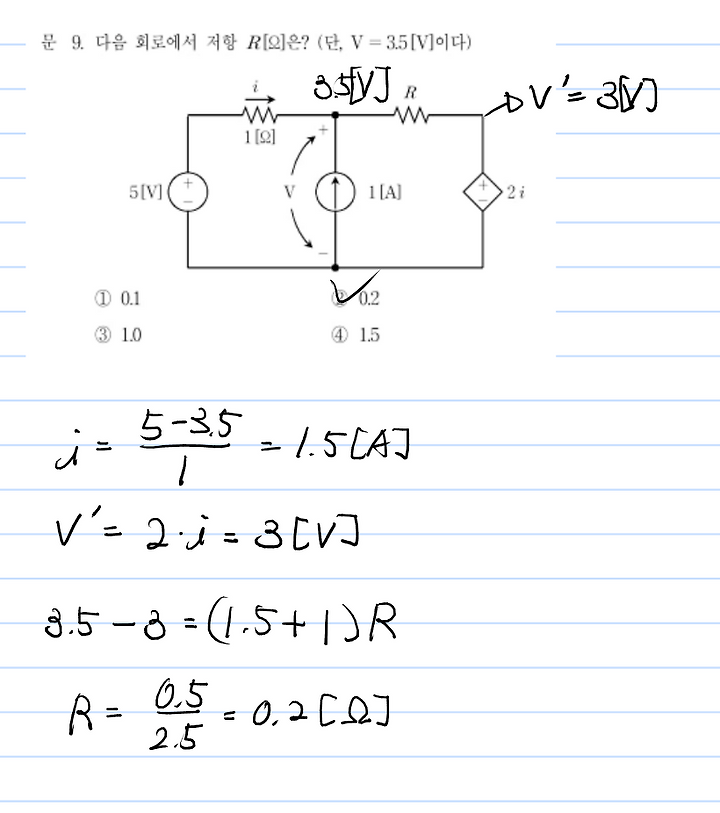 문 9. 다음 회로에서 저항 R[Ω]은? (단, V = 3.5[V]이다)
3.5[V]
i
R
V' = 3[V]
1[Ω]
+
5[V]
+
−
V
1[A]
+
−
2i
−
① 0.1
② 0.2
③ 1.0
④ 1.5
i = 5-3.5 / 1 = 1.5[A]
V' = 2·i = 3[V]
3.5 - 3 = (1.5 + 1)R
R = 0.5 / 2.5 = 0.2[Ω]